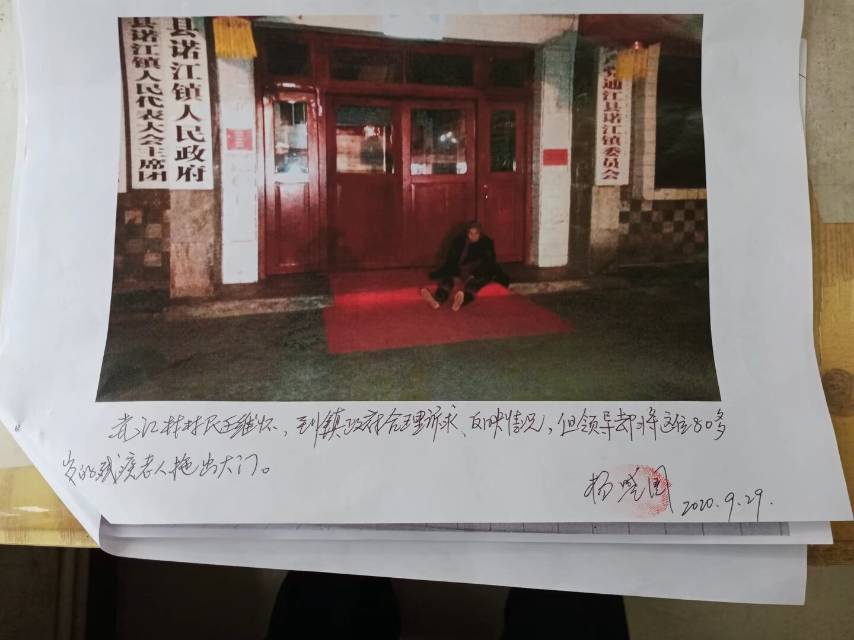 县诺江镇人民代表大会主席团
县诺江镇人民政府
省通江县诺江镇委员会
村村民王维怀，到镇政府合理诉求、反映情况，但领导却将这位80多
岁的残疾老人拖出大门。
杨
2020.9.29.